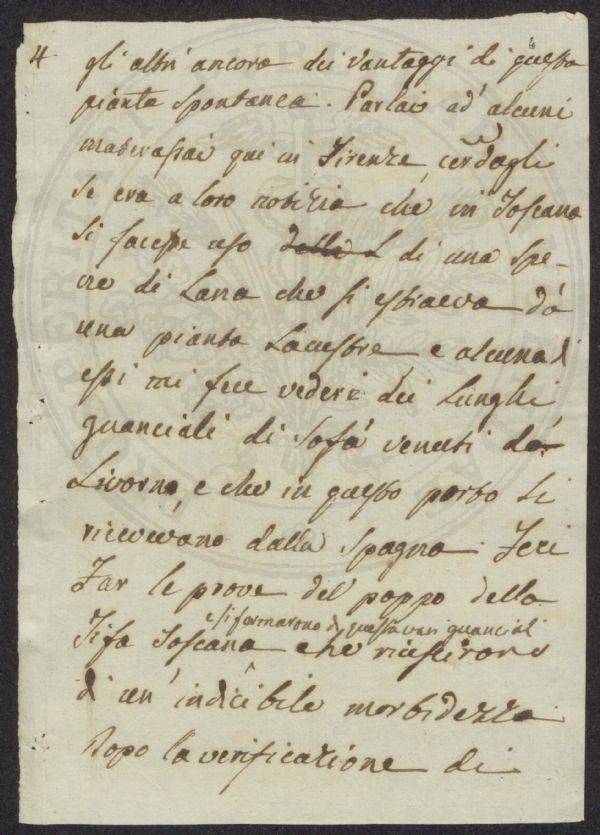 4
gli altri ancora dei vantaggi di questa
pianta spontanea. Parlai ad' alcuni
materassai qui in Firenze,
se era a loro notizia che in Toscana
si facesse uso della L di una spe-
cie di Lana che si estraeva dà
una pianta Lacustre e alcuno di
essi mi fece vedere dei Lunghi
guanciali di Sofà venuti dà
Livorno, e che in questo porto si
ricevevano dalla Spagna. Feci
Far le prove del pappo della
e si formarono di questa vari guanciali
Tifa Toscana che riescirono
di un' indicibile morbidezza
Dopo la verificazione di